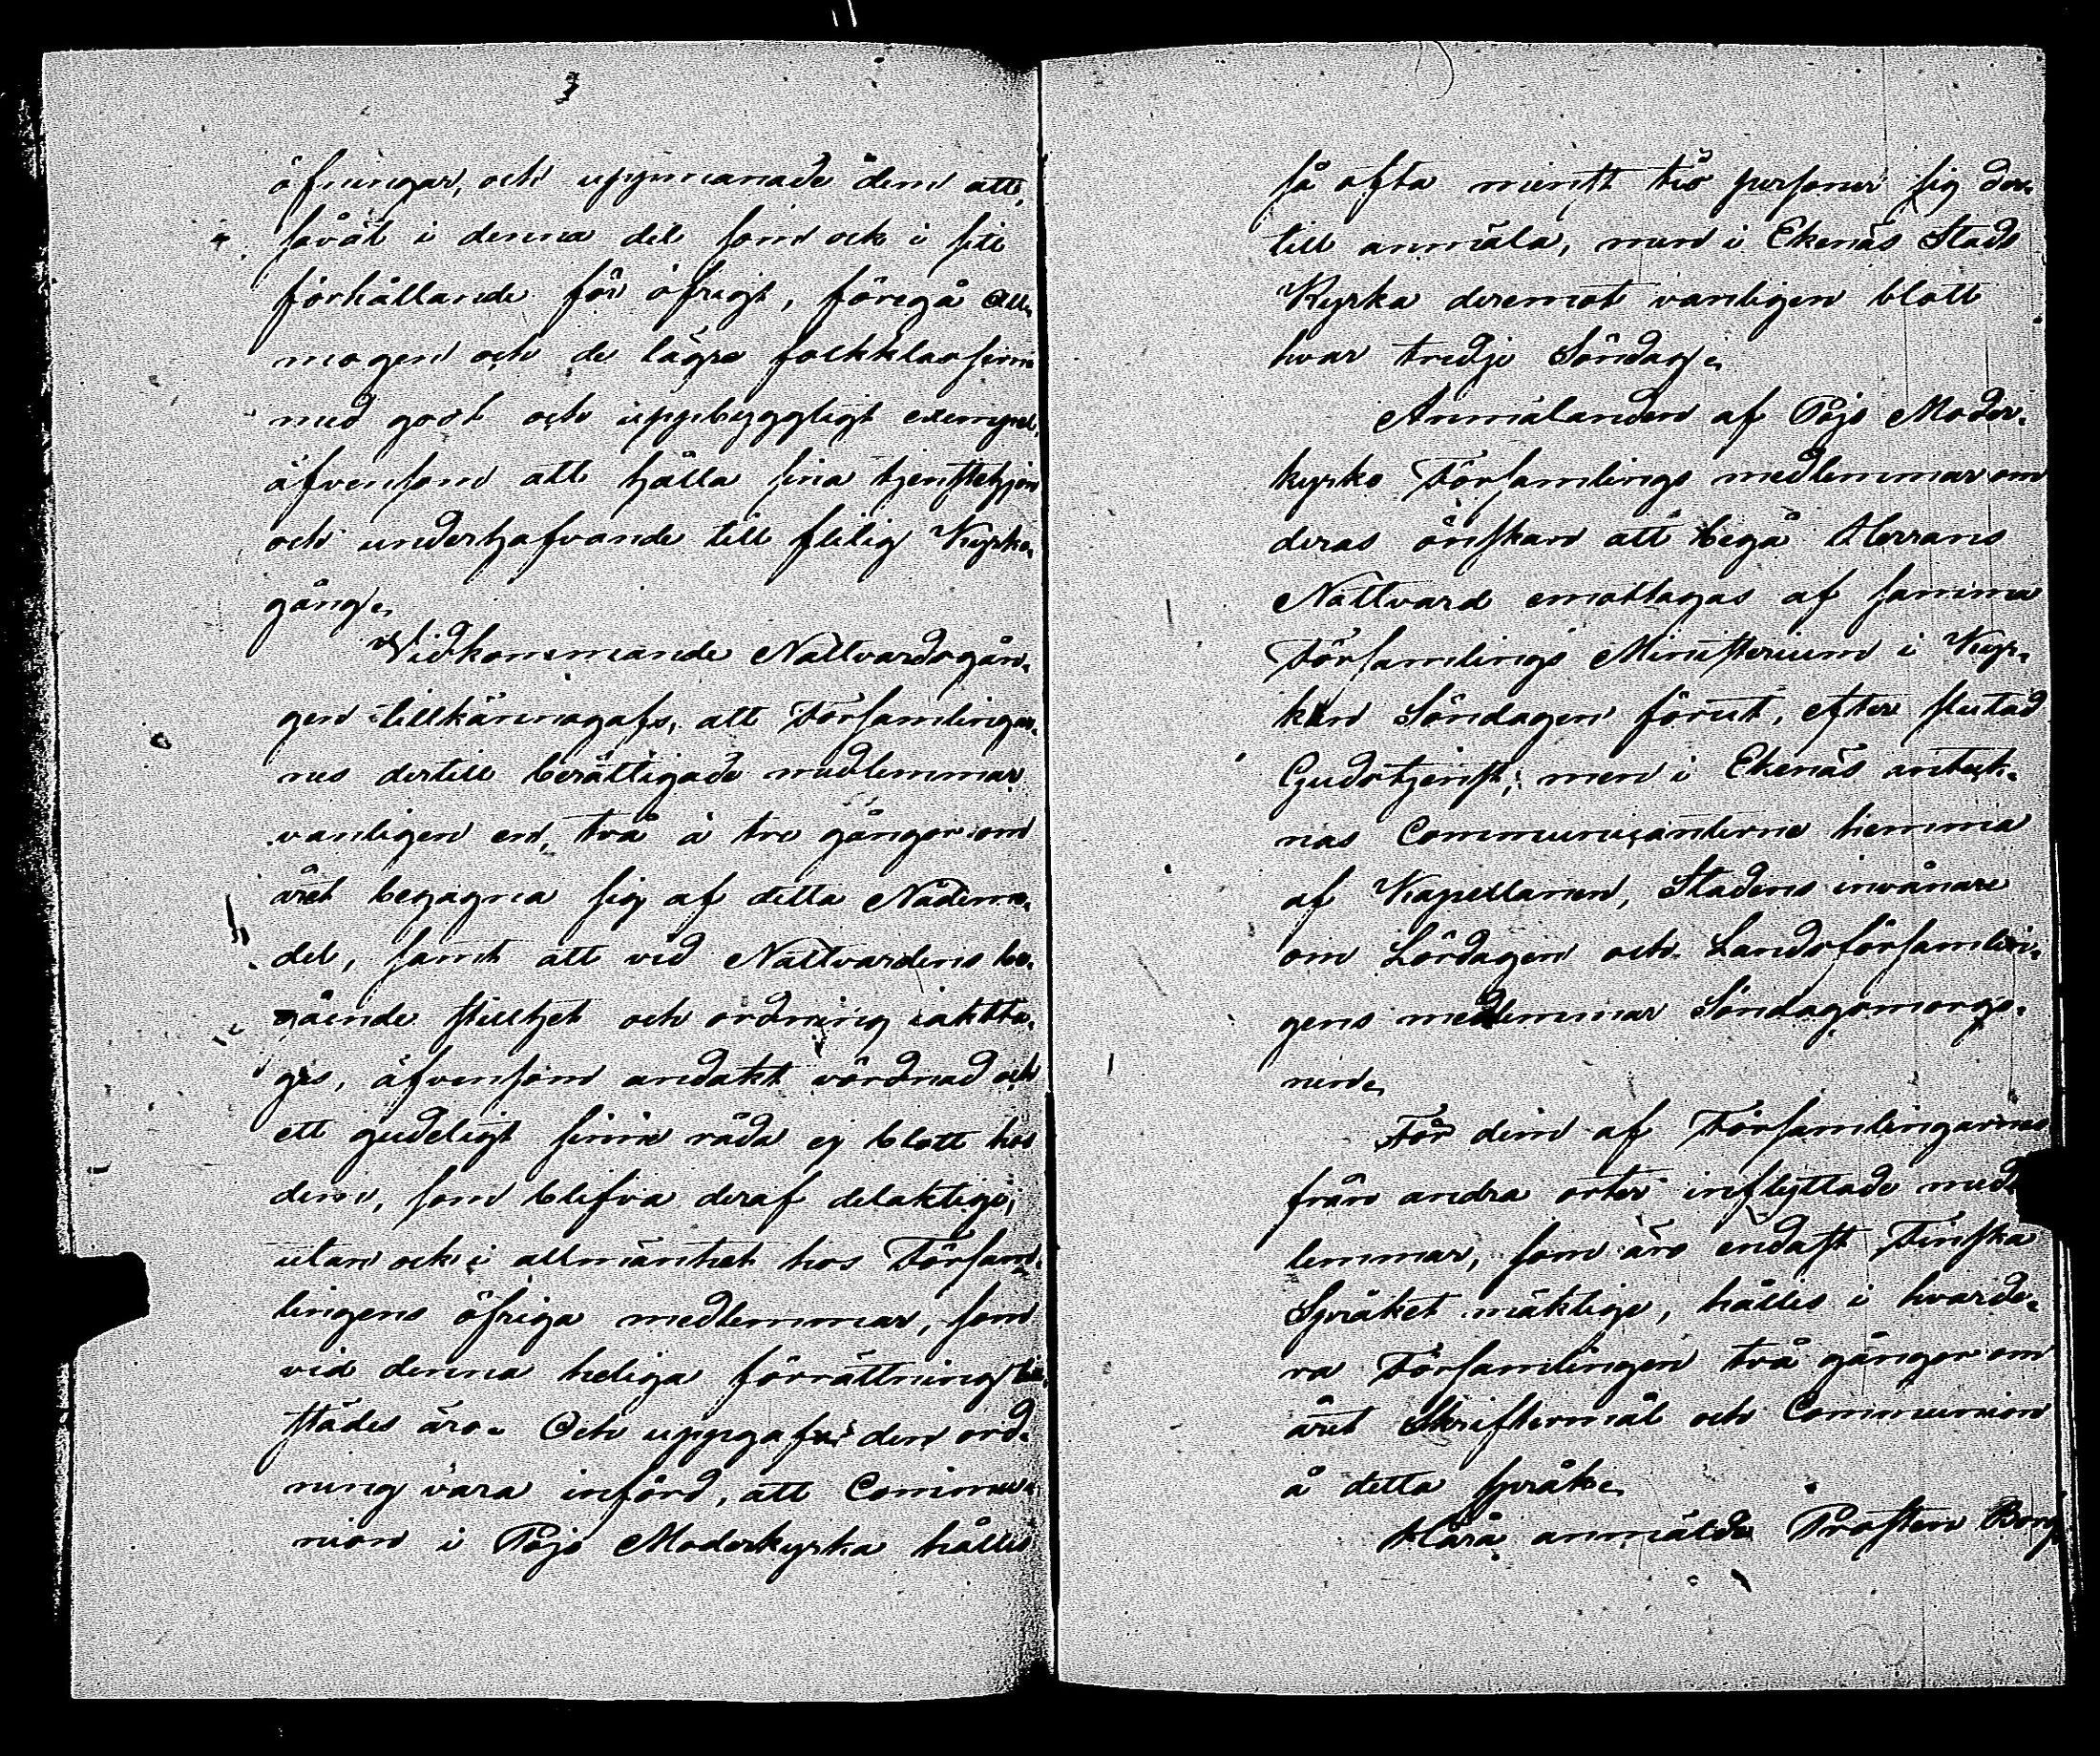 öfningar, och uppmanade dem att,
såväl i denna del som ock i sitt
förhållande för öfrigt, föregå all-
mogen och de lägre folkklasserna
med godt och uppbyggligt exempel,
äfvensom att hålla sina tjenstehjon
och underhafvande till flitig Kyrko-
gång.
Vidkommande Nattvardsgån-
gen tillkännagafs, att Församlingar-
nes dertill berättigade medlemmar
vanligen en, två à tre gånger om
året begagna sig af detta Nådeme-
del, samt att vid Nattvardens be-
gående stillhet och ordning iaktta-
ges, äfvensom andakt vördnad och
ett gudeligt sinne råda ej blott hos
dem, som blifva deraf delaktige,
utan ock i allmänhet hos Försam-
lingens öfriga medlemmar, som
vid denna heliga förrättning till-
städes äro. Och uppgafs den ord-
ning vara införd, att Commu-
nion i Pojo Moderkyrka hålles
så ofta minst tio personer sig der-
till anmäla, men i Ekenäs Stads
Kyrka deremot vanligen blott
hvar tredje Söndag.
Anmälanden af Pojo Moder-
kyrko Församlings medlemmar om
deras önskan att begå Herrans
Nattvard emottagas af samma
Församlings Ministerium i Kyr-
kan Söndagen förut, efter slutad
Gudstjenst; men i Ekenäs anteck-
nas Communicanterne hemma
af Kapellanen, Stadens invånare
om Lördagen och Landsförsamlin-
gens medlemmar Söndagsmorgo-
nen.
För dem af Församlingarnes
från andra orter inflyttade med-
lemmar, som äro endast Finska
Språket mäktige, hålles i hvarde-
ra Församlingen två gånger om
året Skriftermål och Communion
å detta språk.
Härå anmälde Prosten Borg